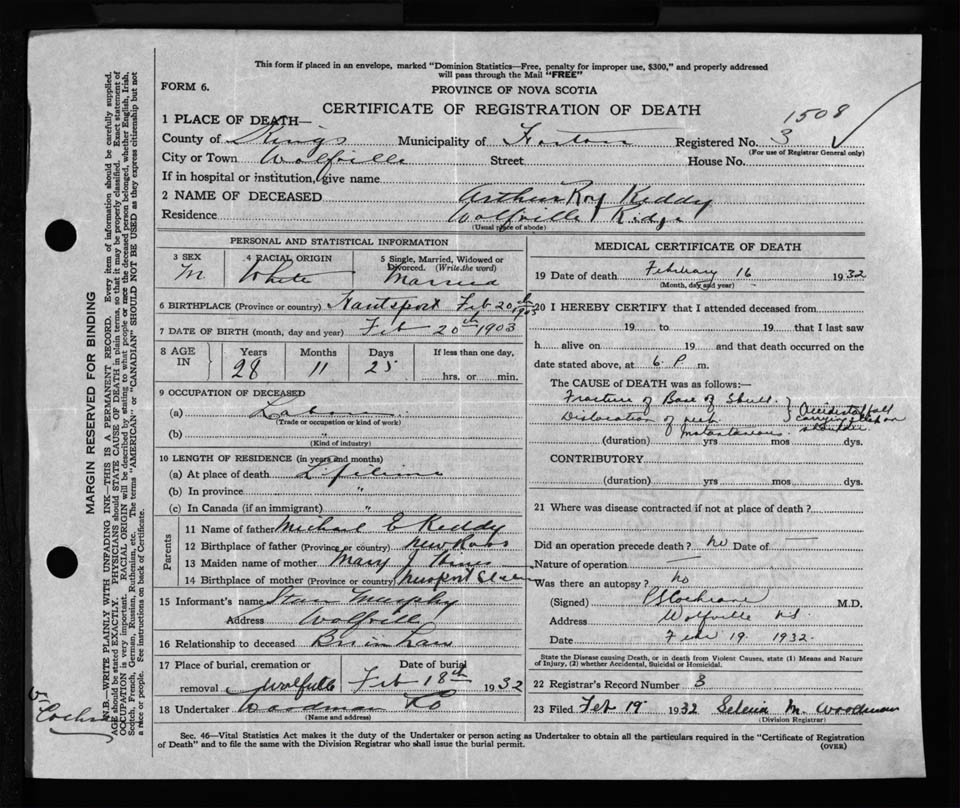 This form if placed in an envelope, marked "Dominion Statistics—Free, penalty for improper use, $300," and properly addressed
will pass through the Mail "FREE"
FORM 6.
PROVINCE OF NOVA SCOTIA
CERTIFICATE OF REGISTRATION OF DEATH
1508
1 PLACE OF DEATH—
County of Kings Municipality of Registered No. 3
(For use of Registrar General only)
City or Town Wolfville Street House No.
If in hospital or institution, give name
2 NAME OF DECEASED Arthur Roy Keddy
Residence Wolfville Ridge
(Usual place of abode)
PERSONAL AND STATISTICAL INFORMATION
3 SEX M
4 RACIAL ORIGIN White
5 Single, Married, Widowed or Divorced. (Write the word) Married
6 BIRTHPLACE (Province or country) Hantsport Feb 20th 1903
7 DATE OF BIRTH (month, day and year) Feb 20th 1903
8 AGE IN Years 28 Months 11 Days 25 If less than one day, hrs. or min.
9 OCCUPATION OF DECEASED
(a) Labor
(Trade or occupation or kind of work)
(b) "
(Kind of industry)
10 LENGTH OF RESIDENCE (in years and months)
(a) At place of death Lifetime
(b) In province "
(c) In Canada (if an immigrant) "
Parents
11 Name of father Michael E Keddy
12 Birthplace of father (Province or country) New Ross
13 Maiden name of mother Mary J
14 Birthplace of mother (Province or country) Newport
15 Informant's name Murphy
Address Wolfville
16 Relationship to deceased Bro in Law
17 Place of burial, cremation or removal Wolfville Date of burial Feb 18th 1932
18 Undertaker Woodman Co
(Name and address)
MEDICAL CERTIFICATE OF DEATH
19 Date of death February 16 1932
(Month, day and year)
20 I HEREBY CERTIFY that I attended deceased from
19 to 19 that I last saw
h alive on 19 and that death occurred on the
date stated above, at 6 P. m.
The CAUSE OF DEATH was as follows:—
Fracture of Base of Skull.
Dislocation of neck
Accidental fall
carrying on
shoulder
Instantaneous
(duration) yrs mos dys.
CONTRIBUTORY
(duration) yrs mos dys.
21 Where was disease contracted if not at place of death?
Did an operation precede death? No Date of —
Nature of operation —
Was there an autopsy? No
(Signed) Cochrane M.D.
Address Wolfville NS
Date Feb 19 1932.
State the Disease causing Death, or in death from Violent Causes, state (1) Means and Nature
of Injury, (2) whether Accidental, Suicidal or Homicidal.
22 Registrar's Record Number 3
23 Filed Feb 19 1932 M. Woodman
(Division Registrar)
Sec. 46—Vital Statistics Act makes it the duty of the Undertaker or person acting as Undertaker to obtain all the particulars required in the "Certificate of Registration
of Death" and to file the same with the Division Registrar who shall issue the burial permit.
(OVER)
MARGIN RESERVED FOR BINDING
N.B.—WRITE PLAINLY WITH UNFADING INK—THIS IS A PERMANENT RECORD. Every item of information should be carefully supplied.
AGE should be stated EXACTLY. PHYSICIANS should STATE CAUSE OF DEATH in plain terms, so that it may be properly classified. Exact statement of
OCCUPATION is very important. RACIAL ORIGIN will be described by stating to what people or race the deceased person belonged, whether English, Irish,
Scotch, French, German, Russian, Ruthenian, etc. The terms "AMERICAN" or "CANADIAN" SHOULD NOT BE USED as they express citizenship but not
a race or people. See instructions on back of Certificate.